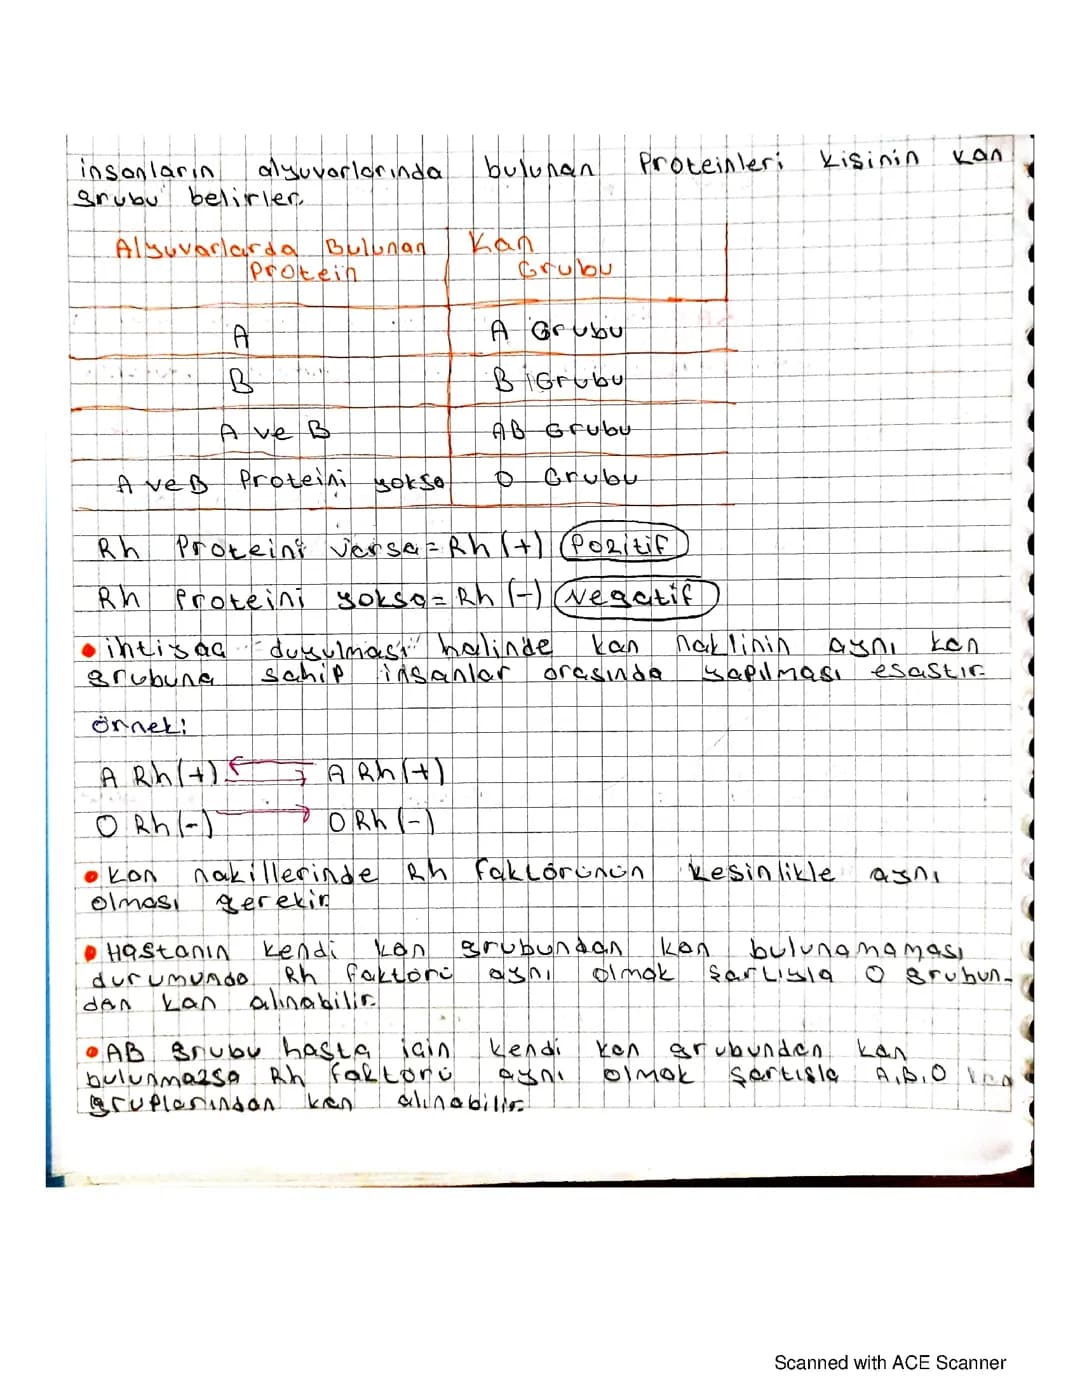 insanların alyuvarlarında bulunan Proteinleri kişinin kan
grubu belirler.
Alyuvarlarda Bulunan Protein | Kan Grubu
A | A Grubu
B | B Grubu
A ve B | AB Grubu
A ve B Proteini yoksa | O Grubu
Rh Proteini varsa = Rh (+) Pozitif
Rh Proteini yoksa = Rh (-) Negatif
• ihtiyaç duyulması halinde kan naklinin aynı kan
grubuna sahip insanlar arasında yapılması esastır.
örnek:
A Rh(+) ⇄ A Rh(+)
O Rh(-) → O Rh (-)
• Kan nakillerinde Rh faktörünün kesinlikle aynı
olması gerekir.
• Hastanın kendi kan grubundan kan bulunamaması
durumunda Rh faktörü aynı olmak şartıyla O grubun-
dan kan alınabilir.
• AB grubu hasta için kendi kan grubundan kan
bulunmazsa Rh faktörü aynı olmak şartısla A,B,O kan
gruplarından kan alınabilir.
Scanned with ACE Scanner